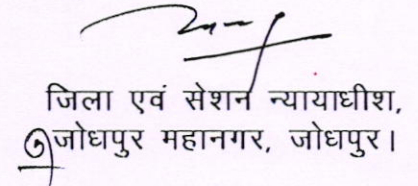 जिला एवं सेशन न्यायाधीश,
जोधपुर महानगर, जोधपुर।